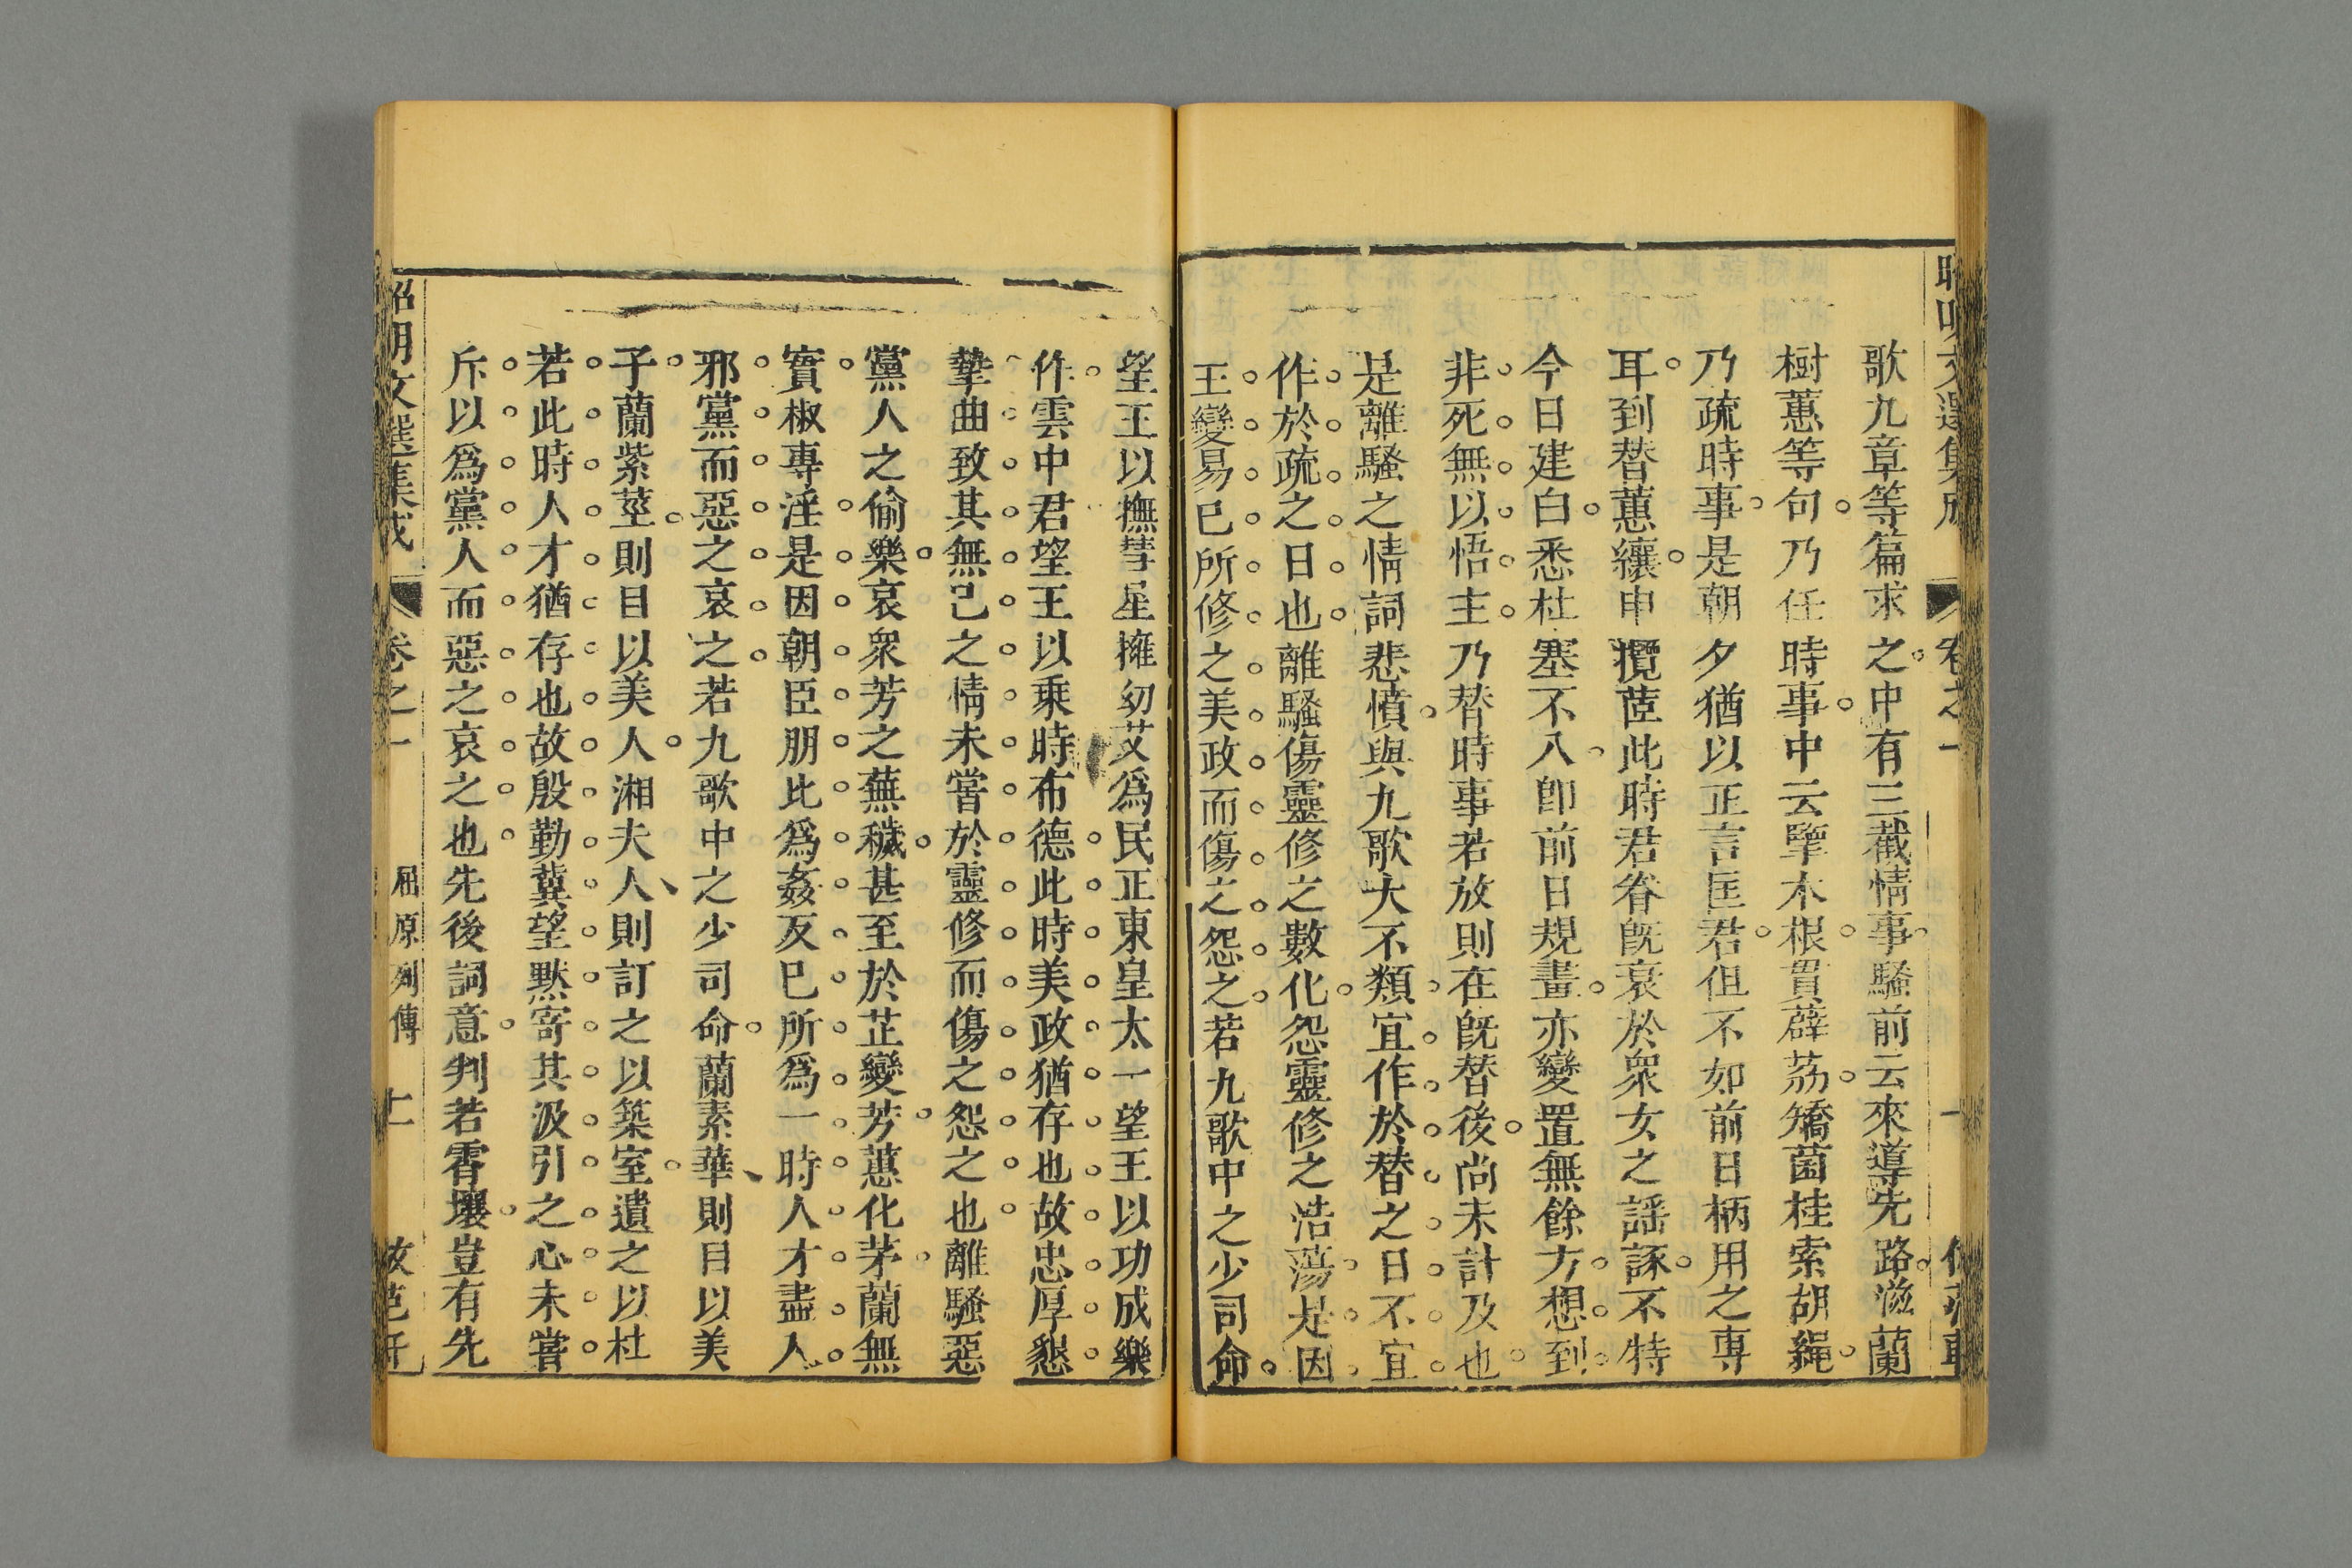 歌九章等篇求之中有三截情事騷前云來導先路滋蘭
樹蕙等句乃任時事中云擥木根貫薜荔矯菌桂索胡繩
乃疏時事是朝夕猶以正言匡君但不如前日柄用之專
耳到替蕙纕申攬茝此時君眷旣衰於衆女之謡諑不特
今日建白悉杜塞不入卽前日規畫亦變置無餘方想到
非死無以悟主乃替時事若放則在旣替後尚未計及也
是離騷之情詞悲憤與九歌大不類宜作於替之日不宜
作於疏之日也離騷傷靈修之數化怨靈修之浩蕩是因
王變易已所修之美政而傷之怨之若九歌中之少司命
望王以撫彗星擁幼艾爲民正東皇太一望王以功成樂
作雲中君望王以乘時布德此時美政猶存也故忠厚懇
摯曲致其無已之情未嘗於靈修而傷之怨之也離騷惡
黨人之偷樂哀衆芳之蕪穢甚至於芷變芳蕙化茅蘭無
實椒專淫是因朝臣朋比爲姦反已所爲一時人才盡入
邪黨而惡之哀之若九歌中之少司命蘭素華則目以美
子蘭紫莖則目以美人湘夫人則訂之以築室遺之以杜
若此時人才猶存也故殷勤冀望默寄其汲引之心未嘗
斥以爲黨人而惡之哀之也先後詞意判若霄壤豈有先
昭明文選集成 卷之一 屈原列傳 上